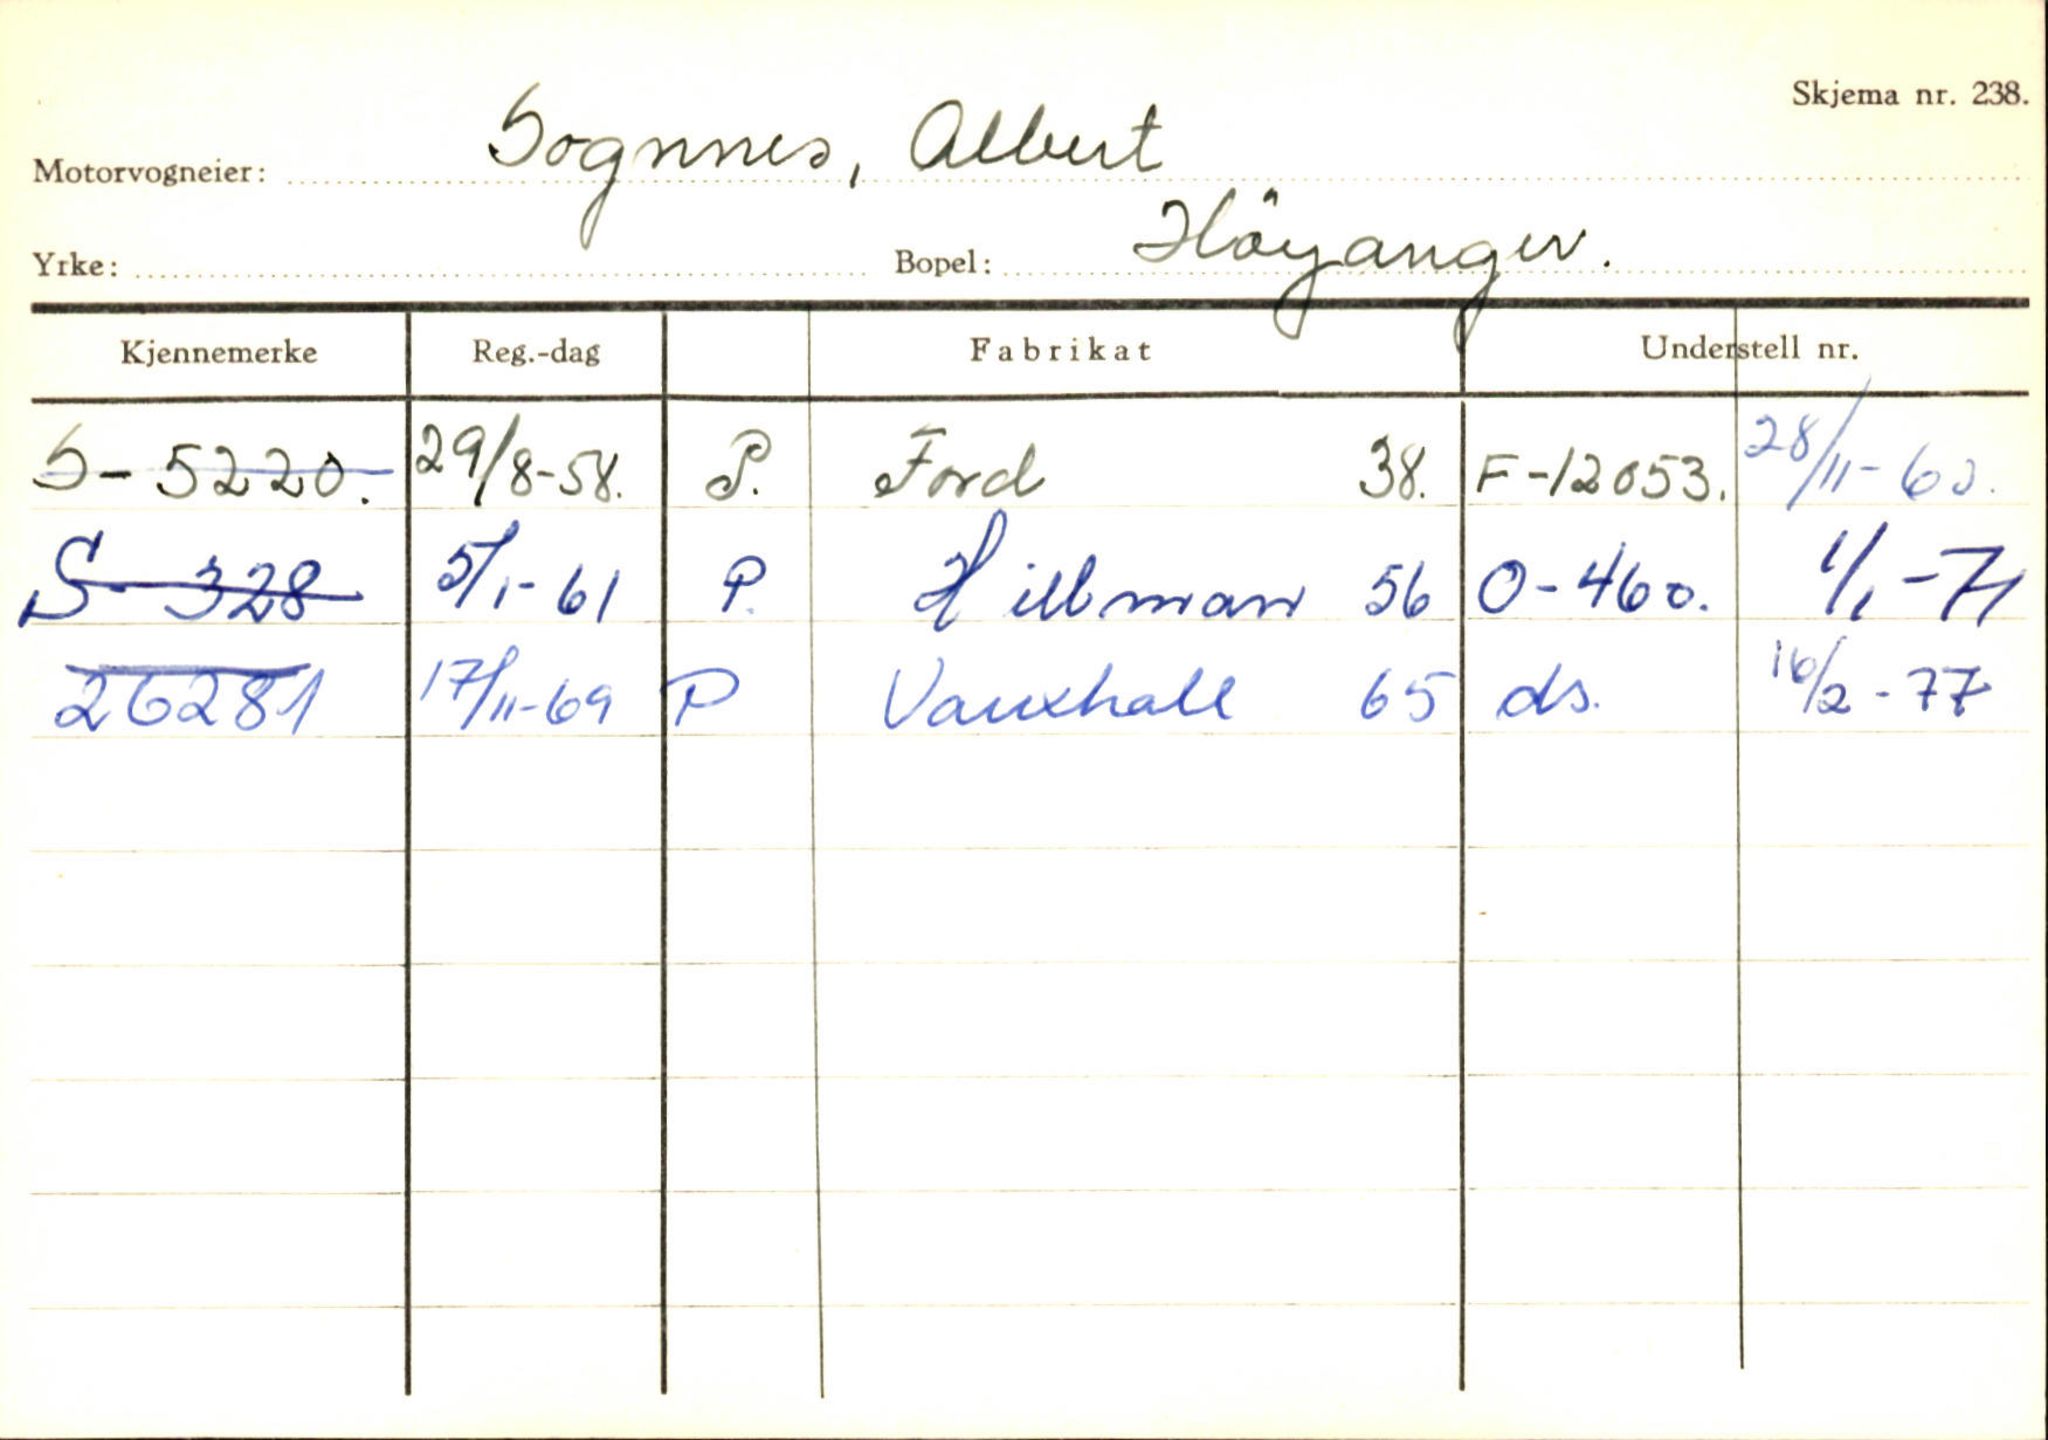 Skjema nr. 238.
Motorvogneier: Sognnes, Albert
Yrke: Bopel: Höyanger.
Kjennemerke Reg.-dag Fabrikat Understell nr.
S-5220. 29/8-58. P. Ford 38. F-12053. 28/11-60.
S-328 5/1-61 P. Hillman 56 O-460. 1/1-71
26281 17/11-69 P Vauxhall 65 ds. 16/2-77